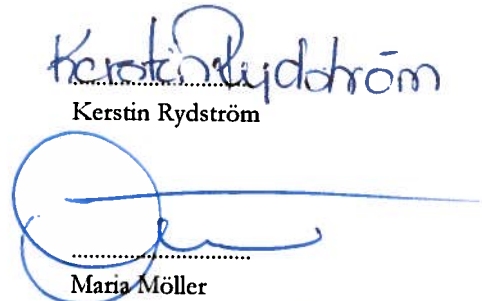 Kerstin Rydström
Kerstin Rydström
Maria Möller